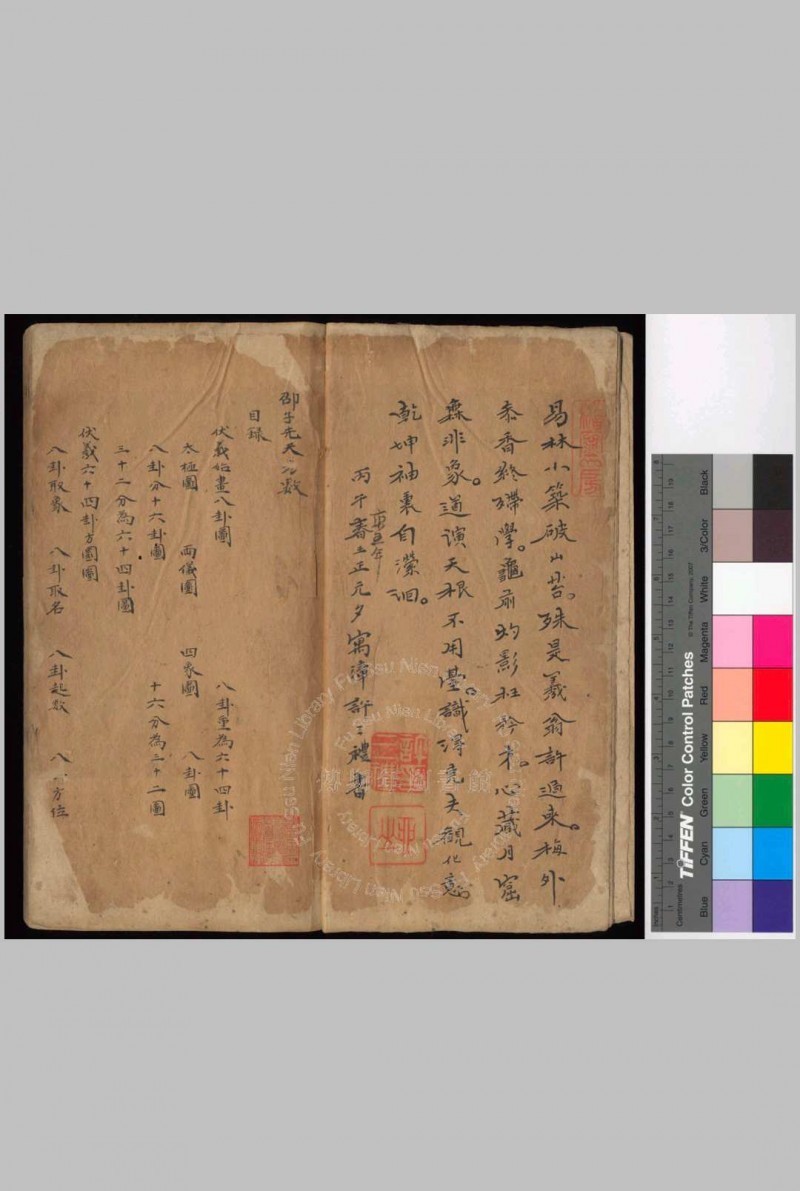 易林小築破山苔。殊是羲翁許過來。梅外
香終 學。龜前灼影枉矜才。心藏月窟
無非象。道演天根不用 。識得堯夫觀化意
乾坤袖裏自瀠洄。
丙午春王正元夕寓 許三禮書
庚 年
邵子先天 數
目錄
伏羲 畫八卦圖 八卦重為六十四卦
太極圖 兩儀圖 四象圖 八卦圖
八卦分十六卦圖 十六分為三十二圖
三十二分為六十四卦圖
伏羲六十四卦方圓圖
八卦取象 八卦取名 八卦起數 八卦方位
Fu Ssu Nien Library
傅斯年圖書館
TIFFEN Color Control Patches
© The Tiffen Company, 2007
Centimetres
Inches
Blue Cyan Green Yellow Red Magenta White 3/Color Black